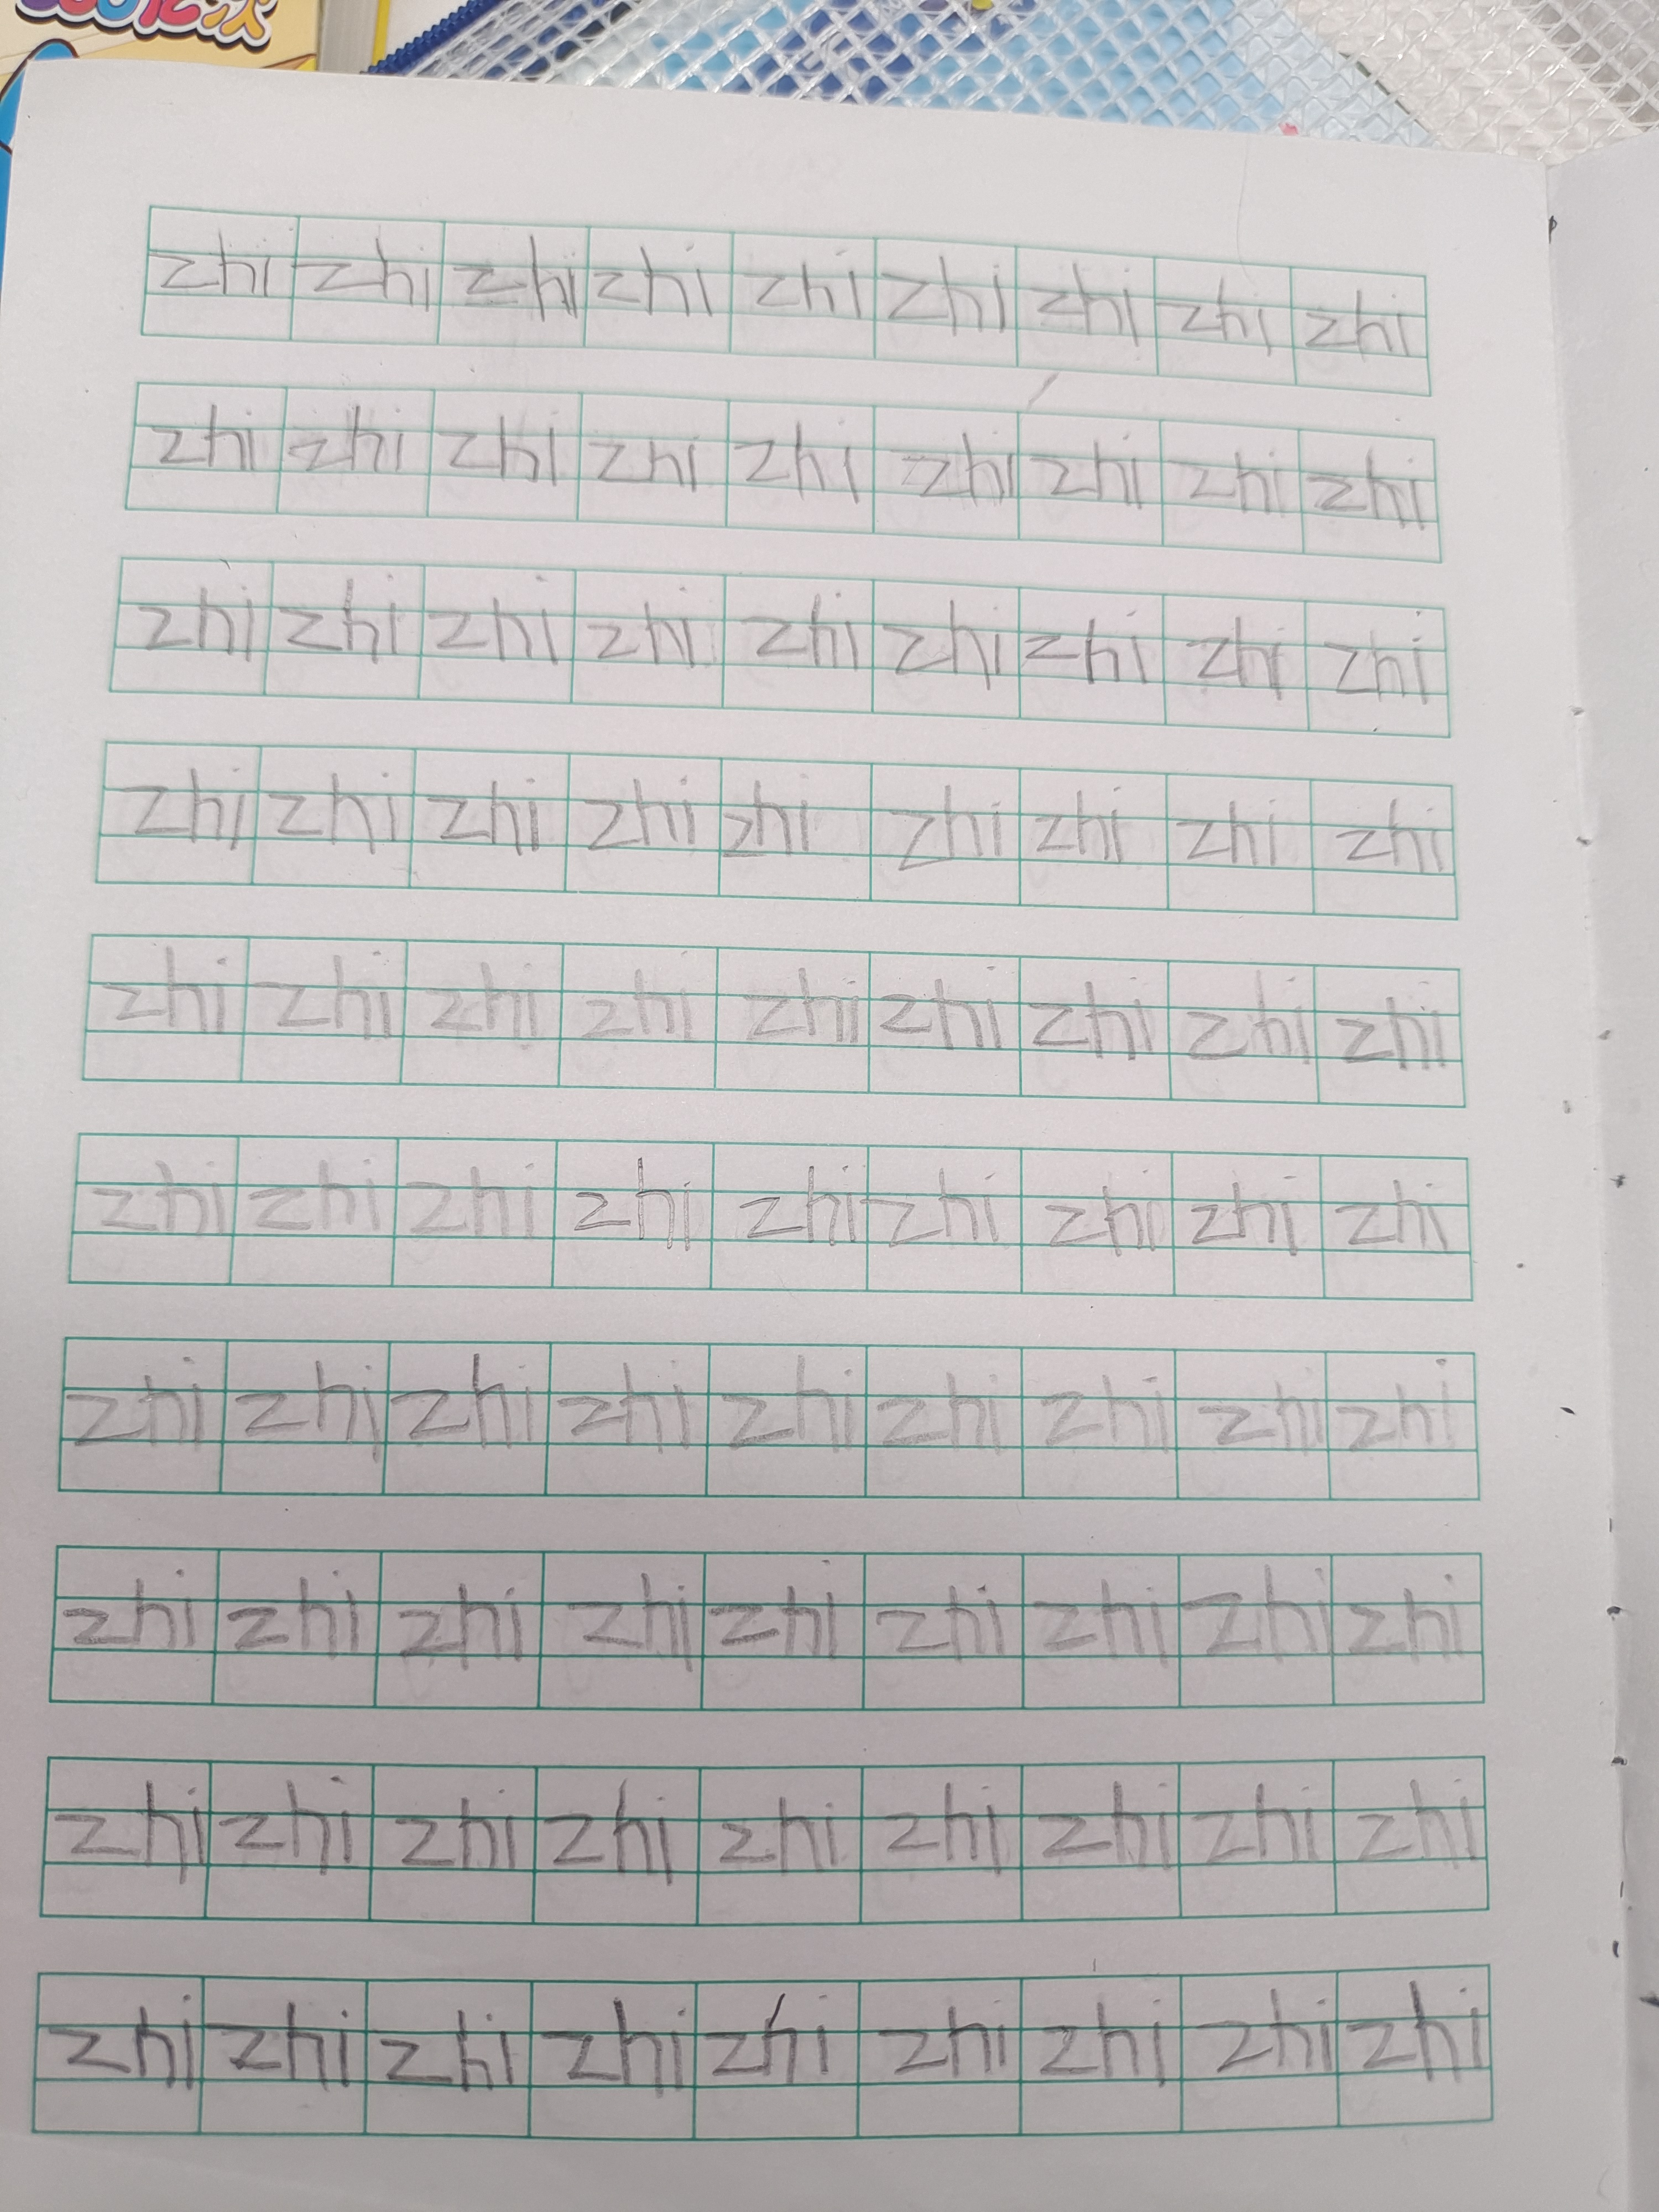 zhi zhi zhi zhi zhi zhi zhi zhi zhi
zhi zhi zhi zhi zhi zhi zhi zhi zhi
zhi zhi zhi zhi zhi zhi zhi zhi zhi
zhi zhi zhi zhi zhi zhi zhi zhi zhi
zhi zhi zhi zhi zhi zhi zhi zhi zhi
zhi zhi zhi zhi zhi zhi zhi zhi zhi
zhi zhi zhi zhi zhi zhi zhi zhi zhi
zhi zhi zhi zhi zhi zhi zhi zhi zhi
zhi zhi zhi zhi zhi zhi zhi zhi zhi
zhi zhi zhi zhi zhi zhi zhi zhi zhi